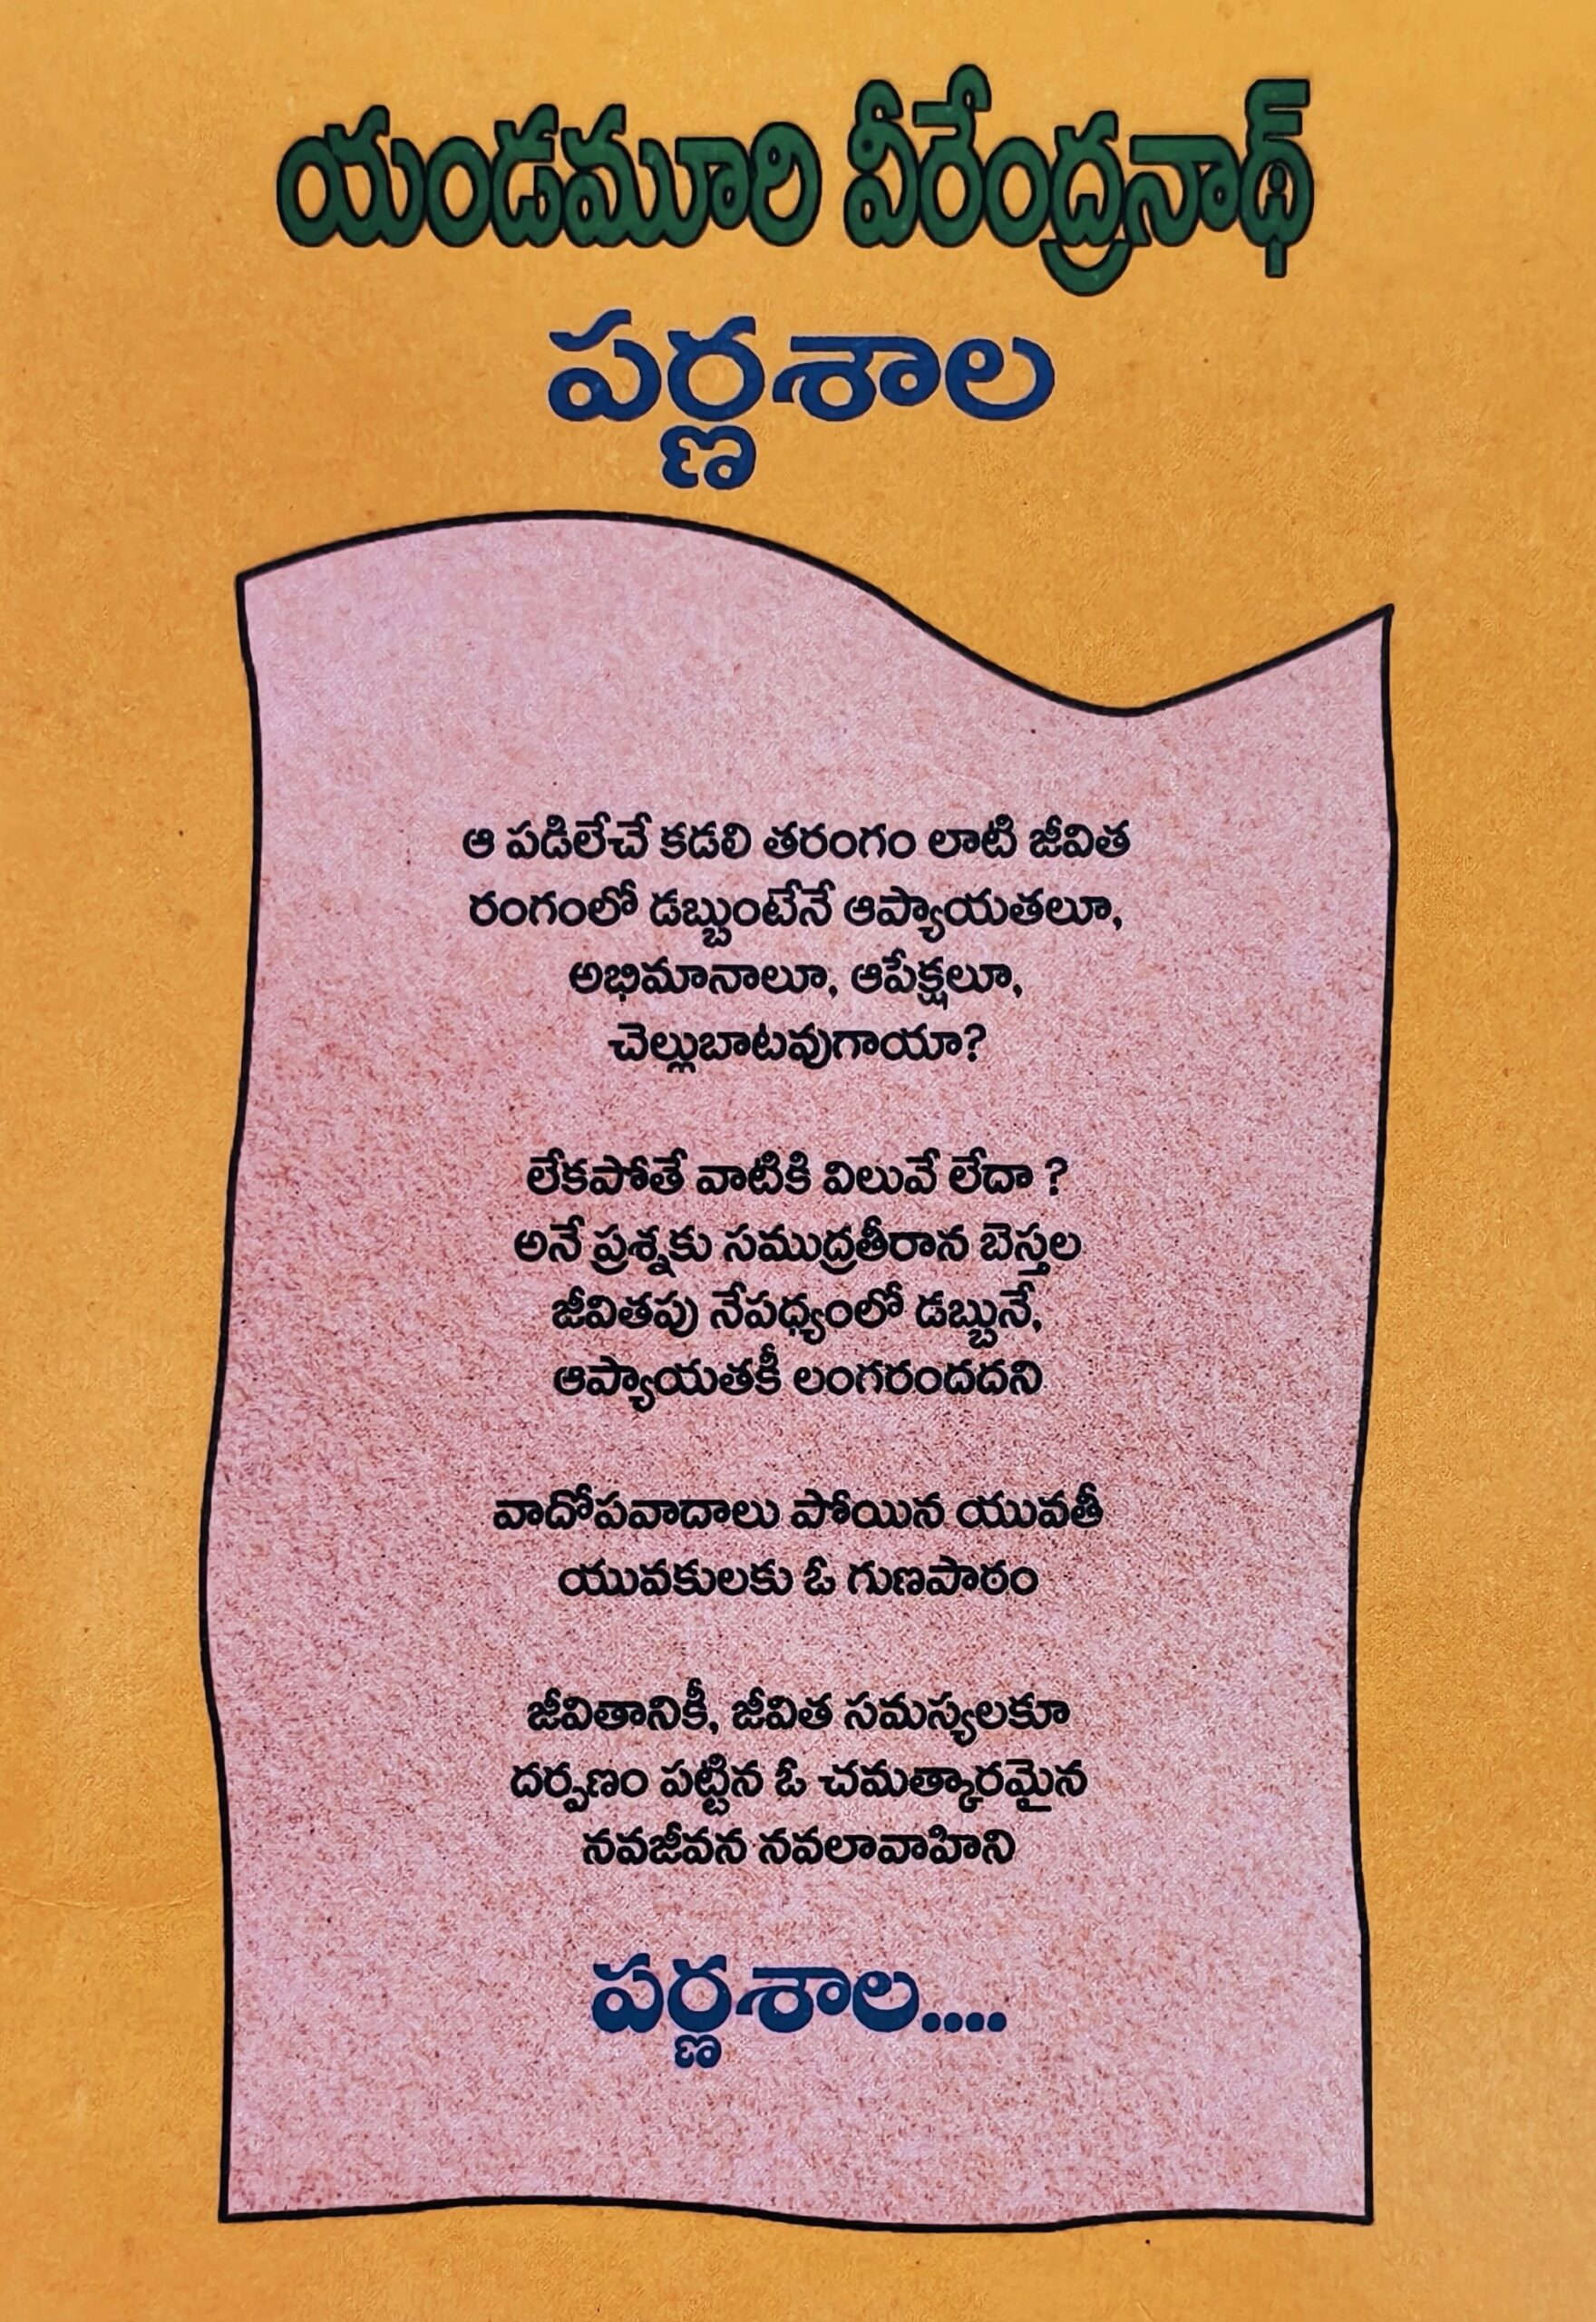 యండమూరి వీరేంద్రనాథ్
పర్ణశాల
ఆ పడిలేచే కడలి తరంగం లాటి జీవిత
రంగంలో డబ్బుంటేనే ఆప్యాయతలూ,
అభిమానాలూ, ఆపేక్షలూ,
చెల్లుబాటవుగాయా?
లేకపోతే వాటికి విలువే లేదా ?
అనే ప్రశ్నకు సముద్రతీరాన బెస్తల
జీవితపు నేపధ్యంలో డబ్బునే,
ఆప్యాయతకీ లంగరందదని
వాదోపవాదాలు పోయిన యువతీ
యువకులకు ఓ గుణపాఠం
జీవితానికీ, జీవిత సమస్యలకూ
దర్పణం పట్టిన ఓ చమత్కారమైన
నవజీవన నవలావాహిని
పర్ణశాల....